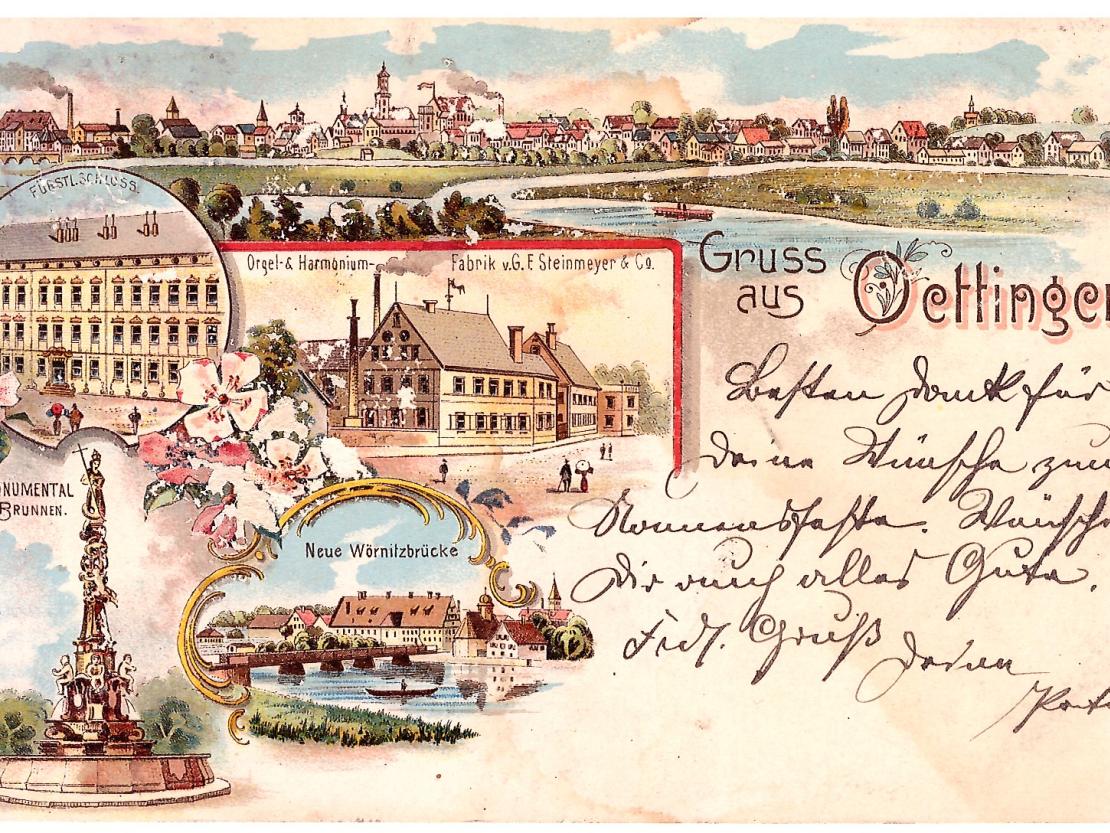 FÜRSTL. SCHLOSS.
Orgel- & Harmonium-Fabrik v. G. F. Steinmeyer & Co.
Gruss
aus Oettingen
ONUMENTAL
BRUNNEN.
Neue Wörnitzbrücke
Besten Dank für
deine Wünsche zum
Namensfeste. Wünsche
Dir auch alles Gute.
Fidl. Gruß